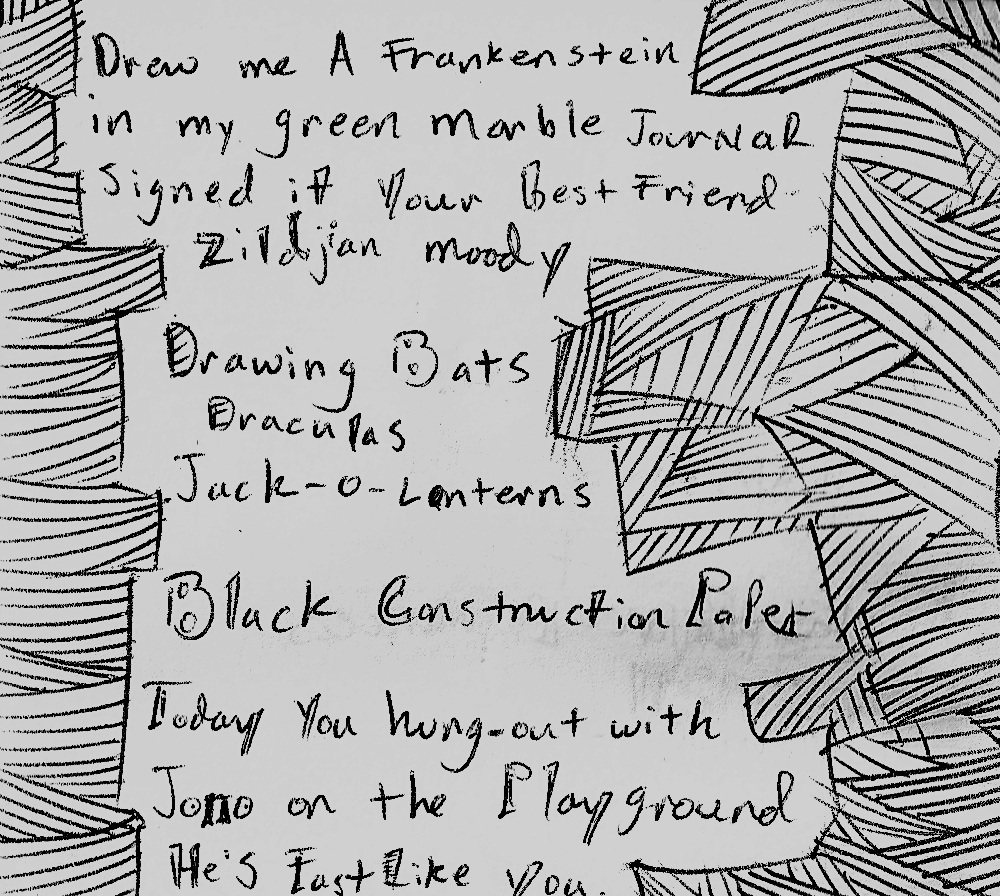 Drew me A Frankenstein
in my green marble JournaL
Signed it Your Best Friend
Zildjian moody
Drawing Bats
Draculas
Jack-o-Lanterns
Black Construction Paper
Today You hung-out with
Jono on the Playground
He's Fast Like you.